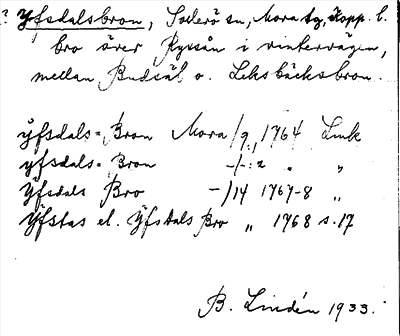 ? Yfsdalsbron, Sollerö sn, Mora tg, Kopp. l.
bro över Ryssån i vintervägen,
mellan Budsäl o. Leksbäcksbron.
ÿfsdals= Bron Mora /9, 1764 Link
yfsdals= Bron -/-: 2 „ „
Ÿfsdals Bro -/14 1767-8 „
Ÿfstas el. Ÿfsdals Bro „ 1768 s. 17
B. Lindén 1933.